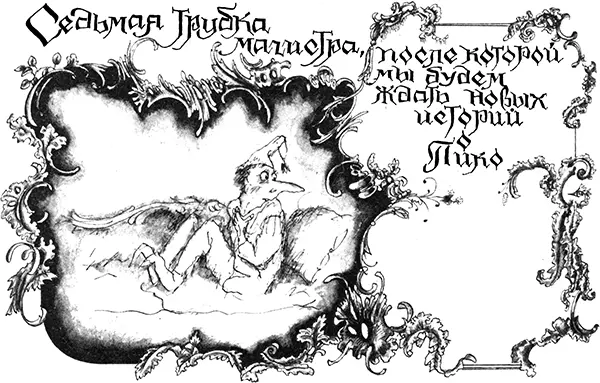 Седьмая Трубка
магистра,
после которой
мы будем
ждать новых
историй
о
Пико